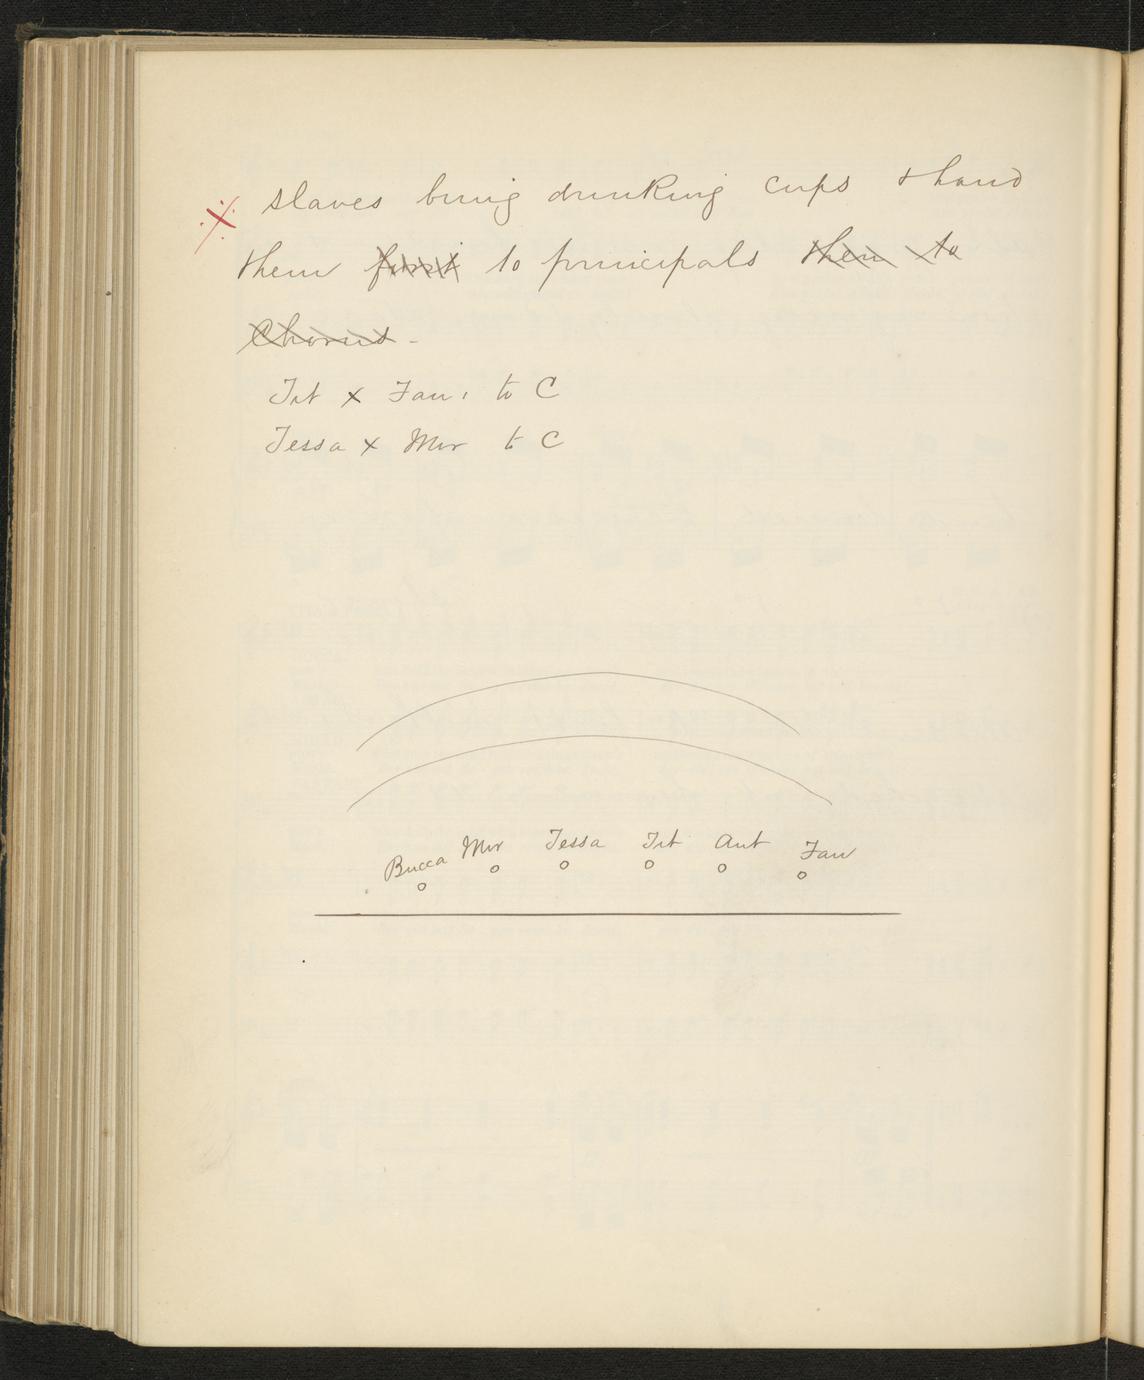 slaves bring drinking cups & hand
them first to principals then to
Chorus -
Tit x Fau, to C
Tessa x Mir to C
Bucca Mir Tessa Tit Ant Fau